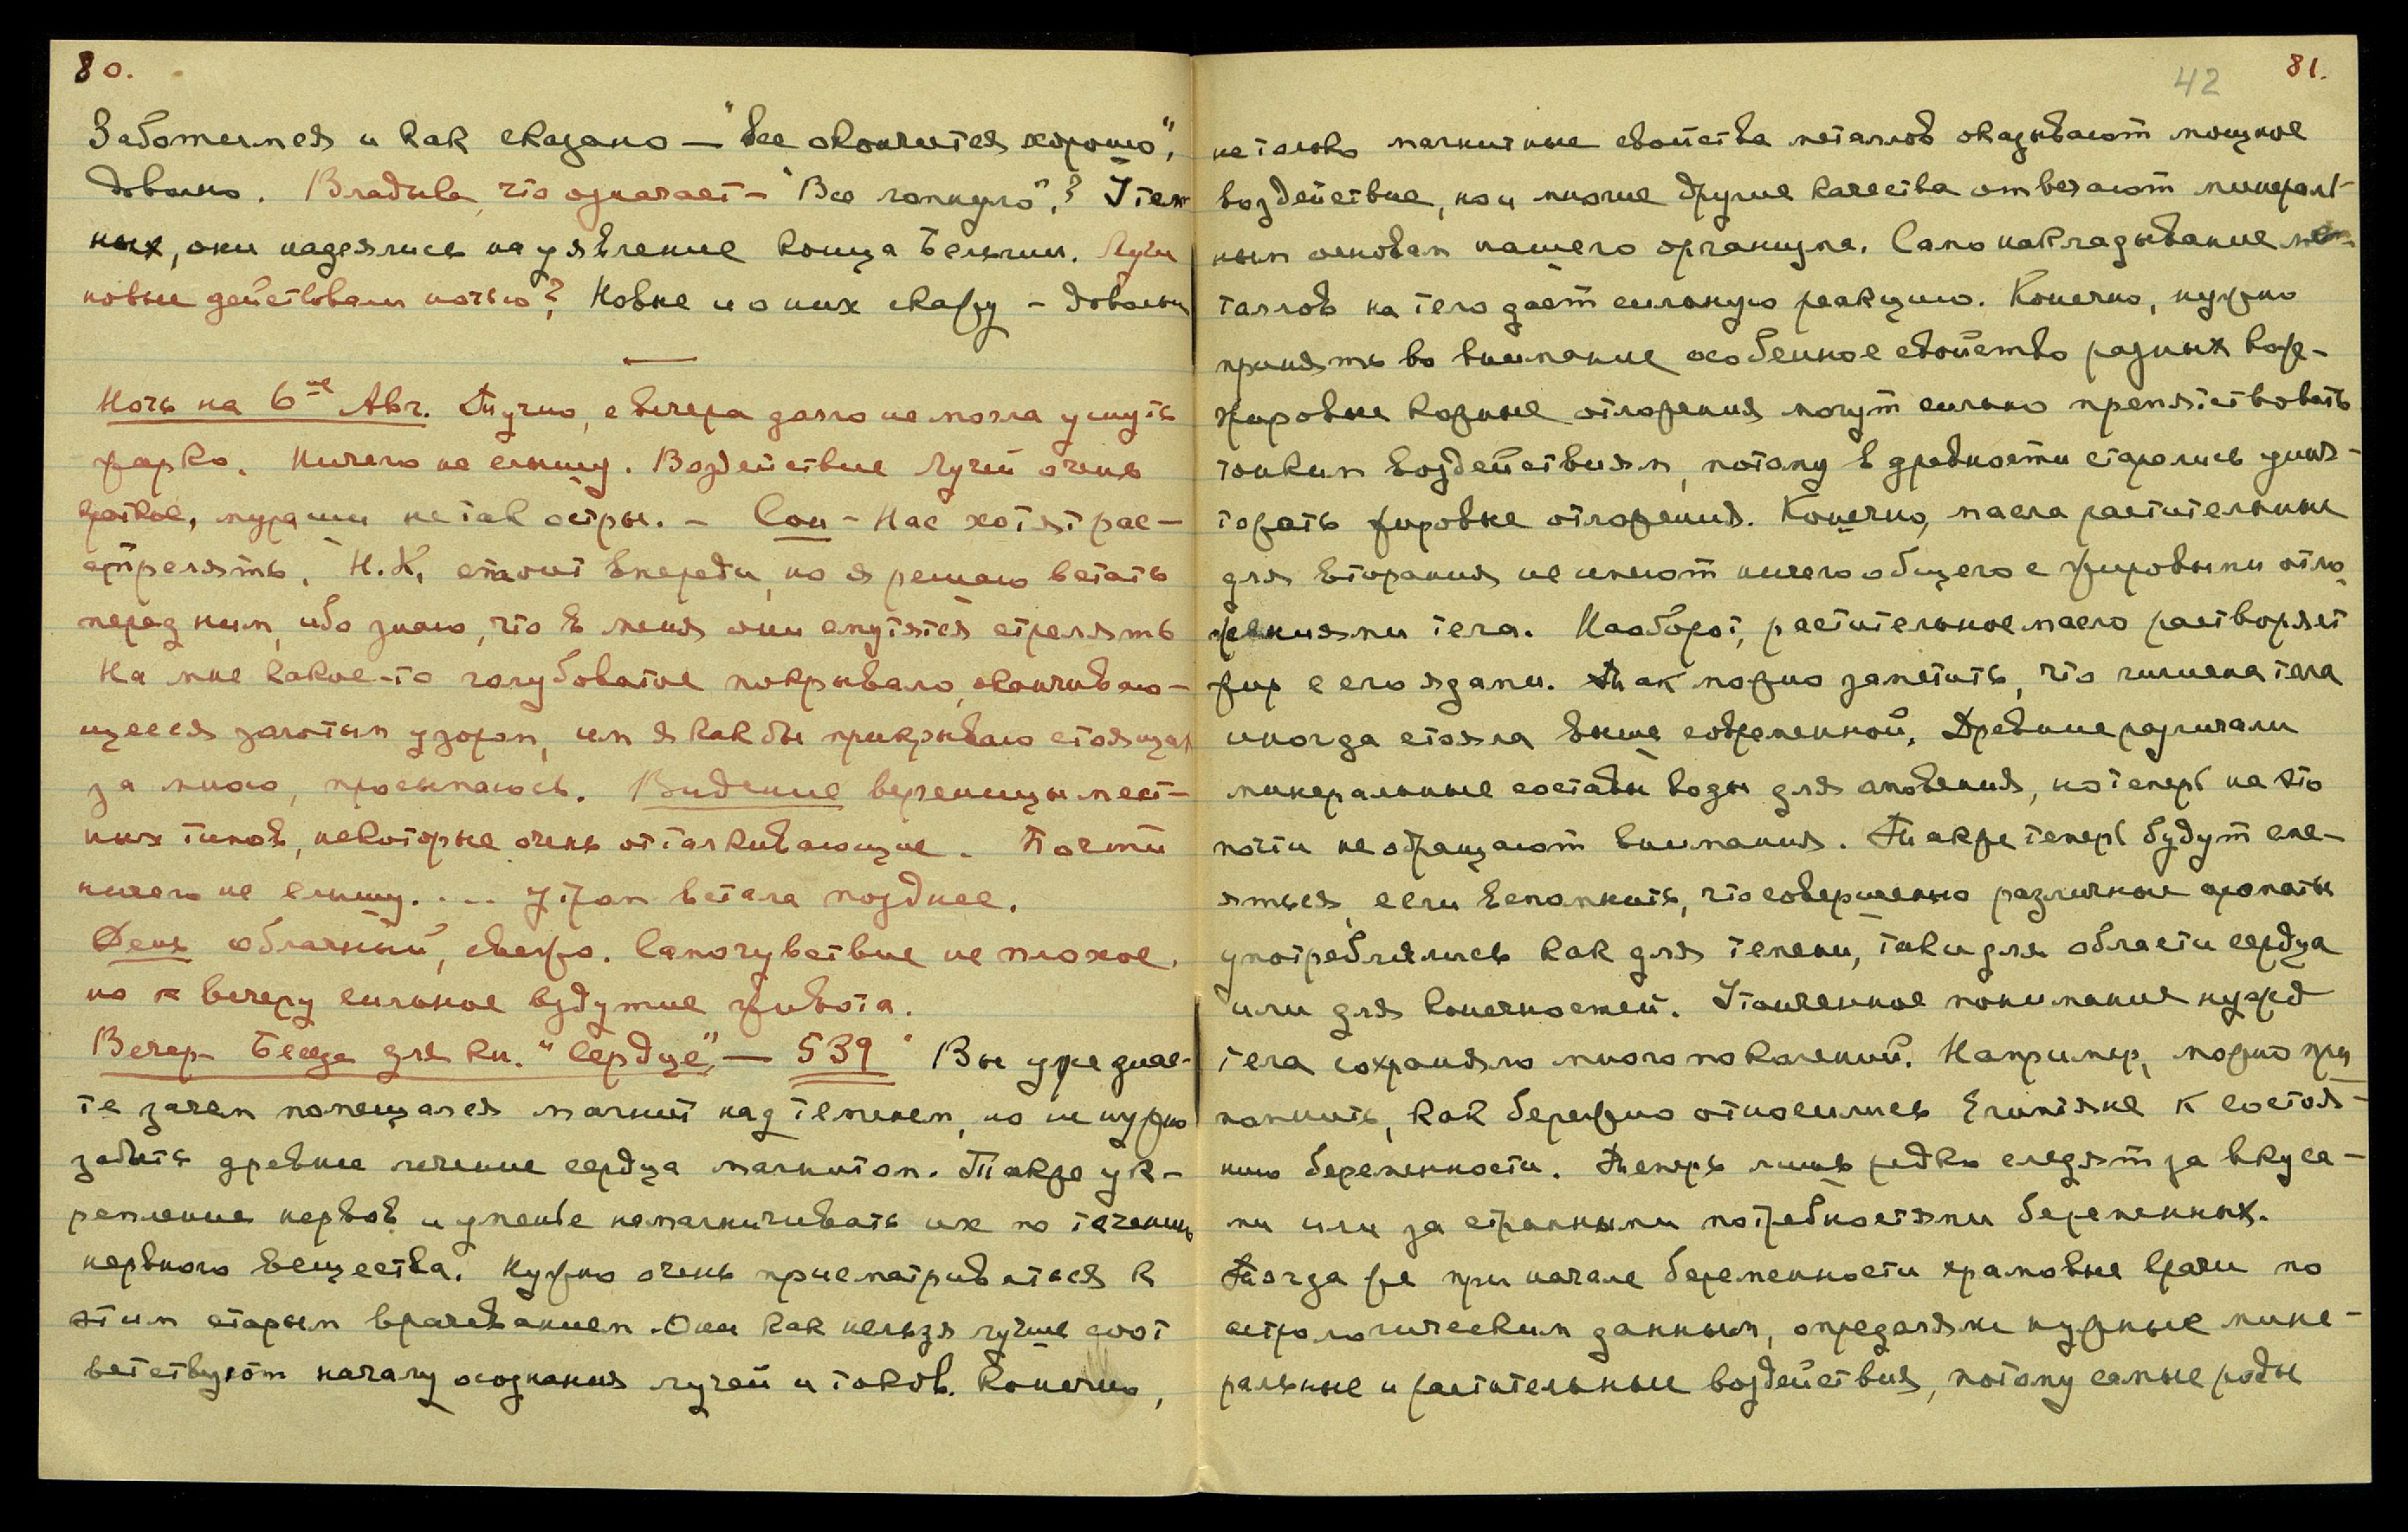 80.
Заботимся и как сказано — "все окончится хорошо",
довольно. Владыка, что означает — "Все лопнуло"? У тем
ных, они надеялись на уявление конца Бельгии. Лучи
новые действовали ночью? Новые и о них скажу — довольно
Ночь на 6-ое Авг. Тучно, с вечера долго не могла уснуть
жарко. Ничего не слышу. Воздействие Лучей очень
кроткое, мураши не так остры. — Сон — Нас хотят рас-
стрелять. Н.К. стоит впереди, но я решаю встать
перед ним, ибо знаю, что в меня они смутятся стрелять
На мне какое-то голубоватое покрывало, оканчиваю-
щееся золотым узором, им я как бы прикрываю стоящих
за мною, просыпаюсь. Видение вереницы мест-
ных типов, некоторые очень отталкивающие. Почти
ничего не слышу. ... Утром встала позднее.
День облачный, свежо. Самочувствие не плохое,
но к вечеру сильное вздутие живота.
Вечер — Беседа для кн. "Сердце", — 539 Вы уже знае-
те зачем помещался магнит над теменем, но не нужно
забыть древнее лечение сердца магнитом. Также ук-
репление нервов и уменье намагничивать их по течению
нервного вещества. Нужно очень присматриваться к
этим старым врачеваниям. Они как нельзя лучше соот
ветствуют началу осознания лучей и токов. Конечно,
42
81.
не только магнитные свойства металлов оказывают мощное
воздействие, но и многие другие качества отвечают минераль-
ным основам нашего организма. Само накладывание ме-
таллов на тело дает сильную реакцию. Конечно, нужно
принять во внимание особенное свойство разных кож-
жировые кожные отложения могут сильно препятствовать
тонким воздействиям, потому в древности старались унич-
тожать жировые отложения. Конечно, масла растительные
для втирания не имеют ничего общего с жировыми отло
жениями тела. Наоборот, растительное масло растворяет
жир с его ядами. Так можно заметить, что гигиена тела
иногда стояла выше современной. Древние различали
минеральные составы воды для омовения, но теперь на это
почти не обращают внимания. Также теперь будут сме-
яться, если вспомнить, что совершенно различные ароматы
употреблялись как для темени, так и для области сердца
или для конечностей. Утонченное понимание нужд
тела сохраняло много поколений. Например, можно при
помнить, как бережно относились Египтяне к состоя-
нию беременности. Теперь лишь редко следят за вкуса-
ми или за странными потребностями беременных.
Тогда же при начале беременности храмовые врачи по
астрологическим данным, определяли нужные мине-
ральные и растительные воздействия, потому самые роды